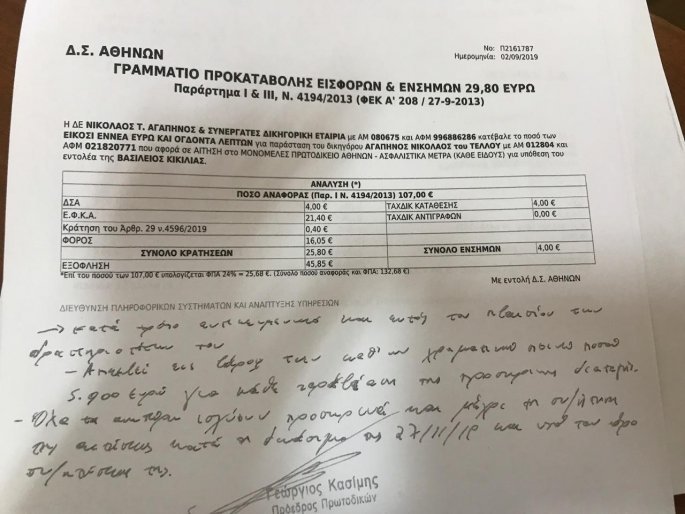 Δ.Σ. ΑΘΗΝΩΝ
No: Π2161787
Ημερομηνία: 02/09/2019
ΓΡΑΜΜΑΤΙΟ ΠΡΟΚΑΤΑΒΟΛΗΣ ΕΙΣΦΟΡΩΝ & ΕΝΣΗΜΩΝ 29,80 ΕΥΡΩ
Παράρτημα Ι & ΙΙΙ, Ν. 4194/2013 (ΦΕΚ Α' 208 / 27-9-2013)
Η ΔΕ ΝΙΚΟΛΑΟΣ Τ. ΑΓΑΠΗΝΟΣ & ΣΥΝΕΡΓΑΤΕΣ ΔΙΚΗΓΟΡΙΚΗ ΕΤΑΙΡΙΑ με ΑΜ 080675 και ΑΦΜ 996886286 κατέβαλε το ποσό των
ΕΙΚΟΣΙ ΕΝΝΕΑ ΕΥΡΩ ΚΑΙ ΟΓΔΟΝΤΑ ΛΕΠΤΩΝ για παράσταση του δικηγόρου ΑΓΑΠΗΝΟΣ ΝΙΚΟΛΑΟΣ του ΤΕΛΛΟΥ με ΑΜ 012804 και
ΑΦΜ 021820771 που αφορά σε ΑΙΤΗΣΗ στο ΜΟΝΟΜΕΛΕΣ ΠΡΩΤΟΔΙΚΕΙΟ ΑΘΗΝΩΝ - ΑΣΦΑΛΙΣΤΙΚΑ ΜΕΤΡΑ (ΚΑΘΕ ΕΙΔΟΥΣ) για υπόθεση του
εντολέα της ΒΑΣΙΛΕΙΟΣ ΚΙΚΙΛΙΑΣ.
ΑΝΑΛΥΣΗ (*)
ΠΟΣΟ ΑΝΑΦΟΡΑΣ (Παρ. Ι Ν. 4194/2013) 107,00 €
ΔΣΑ 4,00 € ΤΑΧΔΙΚ ΚΑΤΑΘΕΣΗΣ 4,00 €
Ε.Φ.Κ.Α. 21,40 € ΤΑΧΔΙΚ ΑΝΤΙΓΡΑΦΩΝ 0,00 €
Κράτηση του Άρθρ. 29 ν.4596/2019 0,40 €
ΦΟΡΟΣ 16,05 €
ΣΥΝΟΛΟ ΚΡΑΤΗΣΕΩΝ 25,80 € ΣΥΝΟΛΟ ΕΝΣΗΜΩΝ 4,00 €
ΕΞΟΦΛΗΣΗ 45,85 €
*Επί του ποσού των 107,00 € υπολογίζεται ΦΠΑ 24% = 25,68 €. (Σύνολο ποσού αναφοράς και ΦΠΑ: 132,68 €)
Με εντολή Δ.Σ. ΑΘΗΝΩΝ
ΔΙΕΥΘΥΝΣΗ ΠΛΗΡΟΦΟΡΙΚΩΝ ΣΥΣΤΗΜΑΤΩΝ ΚΑΙ ΑΝΑΠΤΥΞΗΣ ΥΠΗΡΕΣΙΩΝ
κατά τρόπο και του πλαισίου των
δραστηριοτήτων του
- Απειλεί εις βάρος των καθ' ων χρηματική ποινή ποσού
5.900 ευρώ για κάθε παράβαση της προσωρινής διαταγής.
- Όλα τα ανωτέρω ισχύουν προσωρινά και μέχρι τη συζήτηση
της αιτήσεως κατά τη δικάσιμο της 27/11/19 και υπό τον όρο
συζητήσεως της.
Γεώργιος Κασίμης
Πρόεδρος Πρωτοδικών